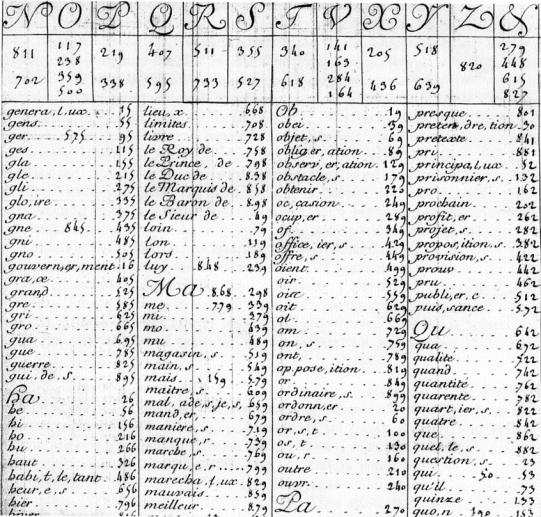 N O P Q R S T V X Y Z &
811 117 219 407 511 355 340 141 205 518 279
238 163 820 448
702 359 338 595 733 527 618 284 436 639 615
500 164 827
genera, l, ux 15
gens 55
ger 575 95
ges 115
gla 155
gle 215
gli 275
glo, ire 335
gna 375
gne 845 435
gni 485
gno 505
gouvern, er, ment 16
gra, ce 405
grand 525
gre 585
gri 625
gro 665
gua 695
gue 785
guerre 825
gui. de, s 895
Ha 26
he 56
hi 156
ho 216
hu 266
haut 326
habi, t, le, tant 486
heur, e, s 656
hier 796
lieu, x 668
limites 708
livre 728
le Roy de 758
le Prince, de 798
le Duc de 838
le Marquis de 858
le Baron de 898
le Sieur de 49
loin 79
lon 119
lors 189
luy 848 239
Ma 868 298
me 779 339
mi 379
mo 439
mu 489
magasin, s 519
main, s 549
mais 159 579
maitre, s 609
mal, ade, s, je, s 659
mand, er 679
maniere, s 719
manque, r 739
marche, s 769
marqu, e, r 799
marecha, l, ux 829
mauvais 859
meilleur 879
Ob 19
obei 39
objet, s 69
oblig, er, ation 89
observ, er, ation 129
obstacle, s 179
obtenir 220
oc, casion 249
ocup, er 289
of 349
office, ier, s 429
offre, s 449
oient 499
oir 529
oise 559
oit 629
ol 669
om 729
on, s 759
ont, 789
op. pose, ition 819
or 849
ordinaire, s 899
ordonn, er 20
ordre, s 60
or, s, t 100
os, t 130
ou, r 160
outre 210
ouvr. 240
Pa 270
presque 801
preten, dre, tion 30
pretexte 841
pri 881
principa, l, ux 52
prisonnier, s 132
pro 162
prochain 202
profit, er 262
projet, s 282
propos, ition, s 382
provision, s 422
prouv 442
pru 462
publi, er, c 512
puis, sance 572
Qu 642
qua 672
qualité 522
quand 742
quantité 762
quarente 782
quart, ier, s 822
quatre 842
que 862
quel, le, s 882
question, s 23
qui 50 53
qu'il 73
quinze 133
quo, n 190 153